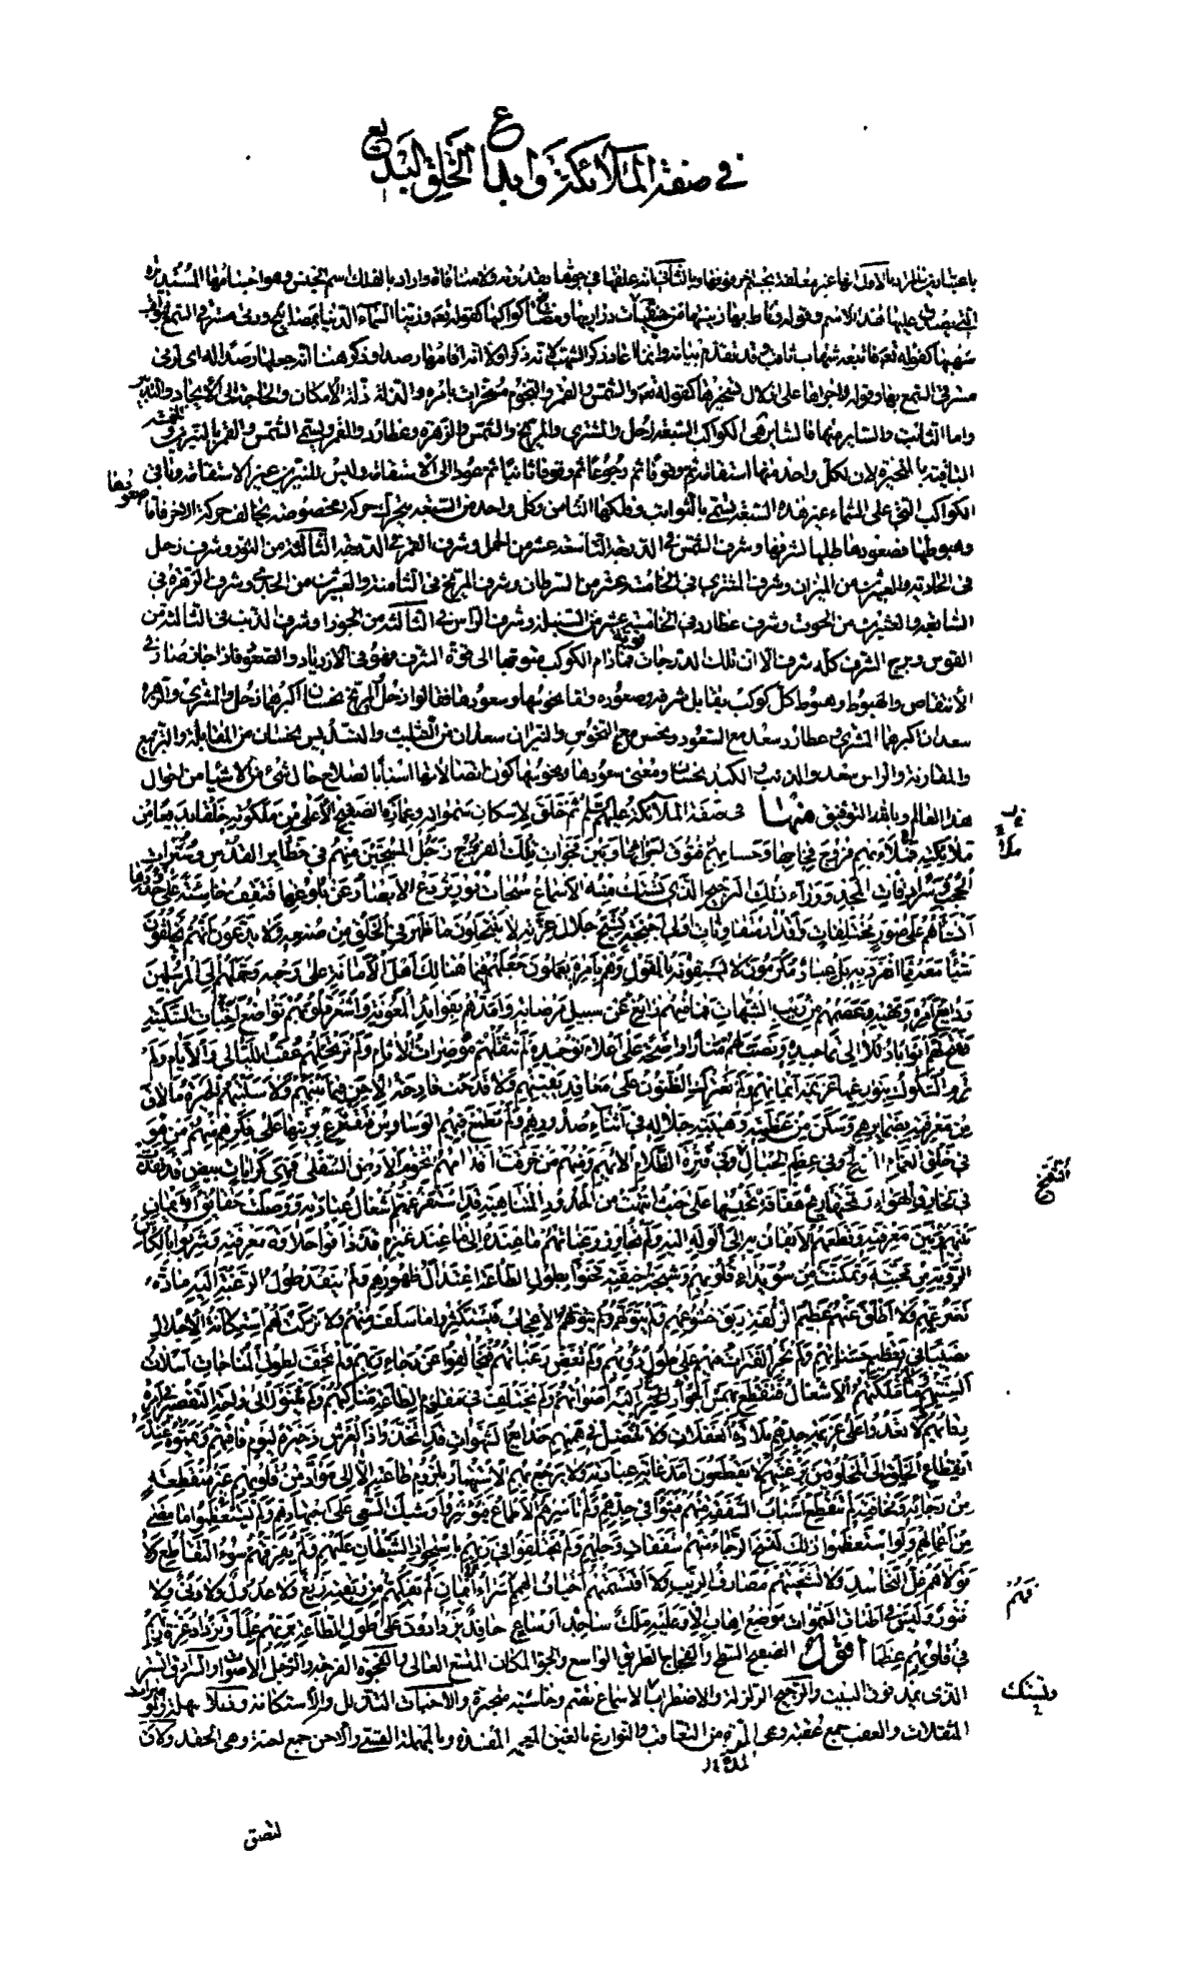 في صفة الملائكة وابداع الخلق البديع
باعتبارين فالمراد بالاول انها غير معلقة بجسم اخر فوقها وبالثاني انه علقها في جوها بقدرته ولا منافاة واراد بالفلك اسم الجنس وهو اجسامها المستديرة
التي يصدق عليها هذا الاسم وقوله وناط بها زينتها من خفيات دراريها ومصابيح كواكبها كقوله تع وزينا السماء الدنيا بمصابيح ورمى مسترقي السمع بثواقب
شهبها كقوله تع فاتبعه شهاب ثاقب وقد تقدم بيانه وانما اعاد ذكر الشهب لانه ذكر اولا انه اقامها رصدا وذكر هنا انه جعلها رصدا له اي لرمي
مسترقي السمع بها وقوله واجراها على اذلال تسخيرها كقوله تع والشمس والقمر والنجوم مسخرات بامره والذلة ذلة الامكان والحاجة الى الايجاد والتدبير
واما الثابت والساير منها فالسايرة هي الكواكب السبعة زحل والمشتري والمريخ والشمس والزهرة وعطارد والقمر ويسمى الشمس والقمر بالنيرين والخمسة
الباقية بالمتحيرة لان لكل واحد منها استقامة ثم وقوفا ثم رجوعا ثم وقوفا ثانيا ثم عودا الى الاستقامة وليس للنيرين غير الاستقامة وباقي
الكواكب التي على السماء غير هذه السبعة يسمى بالثوابت وفلكها الثامن وكل واحد من السبعة يتحرك حركة مخصوصة يخالف حركة الاخر فاما صعودها
وهبوطها فصعودها طلبها لشرفها وشرف الشمس في الدرجة التاسعة عشر من الحمل وشرف القمر في الدرجة الثالثة من الثور وشرف زحل
في الحادية والعشرين من الميزان وشرف المشتري في الخامسة عشر من السرطان وشرف المريخ في الثامنة والعشرين من الجدي وشرف الزهرة في
السابعة والعشرين من الحوت وشرف عطارد في الخامسة عشر من السنبلة وشرف الراس في الثالثة من الجوزا وشرف الذنب في الثالثة من
القوس وبرج الشرف كله شرف الا ان تلك الدرجات قوية فما دام الكوكب متوجها الى قوة الشرف فهو في الازدياد والصعود فاذا جاز صار في
الانتقاص والهبوط وهبوط كل كوكب يقابل شرفه وصعوده واما نحوسها وسعودها فقالوا زحل والمريخ نحسان اكبرهما زحل والمشتري والزهرة
سعدان اكبرهما المشتري وعطارد سعد مع السعود ونحس مع النحوس والنيران سعدان من التثليث والتسديس نحسان من المقابلة والتربيع
والمقارنة والراس سعد والذنب والكبد نحسان ومعنى سعودها ونحوسها كون اتصالاتها اسبابا لصلاح حال شيء من الاشياء من احوال
هذا العالم وبالله التوفيق منها في صفة الملائكة عليهم السلم ثم خلق لاسكان سمواته وعمارة الصفيح الاعلى من ملكوته خلقا بديعا من
ملائكته فملاء بهم فروج فجاجها وحشا بهم فتوق اجوائها وبين فجوات تلك الفروج زجل المسبحين منهم في حظاير القدس وسترات
الحجب وسرادقات المجد ووراء ذلك الرجيج الذي تستك منه الاسماع سبحات نور تردع الابصار عن بلوغها فتقف خاسئة على حدودها
انشاهم على صور مختلفات واقدار متفاوتات اولي اجنحة تسبح جلال عزته لا ينتحلون ما ظهر في الخلق من صنعه ولا يدعون انهم يخلقون
شيئا معه مما انفرد به بل عباد مكرمون لا يسبقونه بالقول وهم بامره يعملون جعلهم فيما هنالك اهل الامانة على وحيه وحملهم الى المرسلين
ودايع امره ونهيه وعصمهم من ريب الشبهات فما فيهم زايغ عن سبيل مرضاته وامدهم بفوايد المعونة واشعر قلوبهم تواضع اخبات السكينة
وفتح لهم ابوابا ذللا الى تماجيده ونصب لهم منارا واضحة على اعلام توحيده لم تثقلهم موصرات الاثام ولم ترتحلهم عقب الليالي والايام ولم
ترم الشكوك بنوازعها عزيمة ايمانهم ولم تعترك الظنون على معاقد يقينهم ولا قدحت قادحة الاحن فيما بينهم ولا سلبتهم الحيرة ما لاق
من معرفته بضمايرهم وسكن من عظمته وهيبة جلاله في اثناء صدورهم ولم تطمع فيهم الوساوس فتقترع برينها على فكرهم منهم من هو
في خلق الغمام الدلح وفي عظم الجبال الشمخ وفي قترة الظلام الايهم ومنهم من خرقت اقدامهم تخوم الارض السفلى فهي كرايات بيض قد نفذت
في مخارق الهواء وتحتها ريح هفافة تحبسها على حيث انتهت من الحدود المتناهية قد استفرغتهم اشغال عبادته ووصلت حقايق الايمان
بينهم وبين معرفته وقطعهم الايقان به الى الوله اليه ولم تجاوز رغباتهم ما عنده الى ما عند غيره قد ذاقوا حلاوة معرفته وشربوا بالكاس
الروية من محبته وتمكنت من سويداء قلوبهم وشيجة خيفته فحنوا بطول الطاعة اعتدال ظهورهم ولم ينفد طول الرغبة اليه مادة
تضرعهم ولا اطلق عنهم عظيم الزلفة ربق خشوعهم ولم يتولهم الاعجاب فيستكثروا ما سلف منهم ولا تركت لهم استكانة الاجلال
نصيبا في تعظيم حسناتهم ولم تجر الفترات فيهم على طول دؤبهم ولم تغض رغباتهم فيخالفوا عن رجاء ربهم ولم تجف لطول المناجات اسلات
السنتهم ولا ملكتهم الاشغال فتنقطع بهمس الجؤار اليه اصواتهم ولم تختلف في مقاوم الطاعة مناكبهم ولم يثنوا الى راحة التقصير في امره
رقابهم لا تعدوا على عزيمة جدهم بلادة الغفلات ولا تنتضل في هممهم خدايع الشهوات قد اتخذوا ذا العرش ذخيرة ليوم فاقتهم ويمموه عند
انقطاع الخلق الى المخلوقين برغبتهم لا يقطعون امد غاية عبادته ولا يرجع بهم الاستهتار بلزوم طاعته الا الى مواد من قلوبهم غير منقطعة
من رجائه ومخافته لم تنقطع اسباب الشفقة منهم فينوا في جدهم ولم تاسرهم الاطماع فيؤثروا وشيك السعي على اجتهادهم ولم يستعظموا ما مضى
من اعمالهم ولو استعظموا ذلك لنسخ الرجاء منهم شفقات وجلهم ولم يختلفوا في ربهم باستحواذ الشيطان عليهم ولم يفرقهم سوء التقاطع ولا
تولاهم غل التحاسد ولا تشعبتهم مصارف الريب ولا اقتسمتهم اخياف الهمم فهم اسراء ايمان لم يفكهم من ربقته زيغ ولا عدول ولا ونى ولا
فتور وليس في اطباق السموات موضع اهاب الا وعليه ملك ساجد او ساع حافد يزدادون على طول الطاعة بربهم علما وتزداد عزة ربهم
في قلوبهم عظما اقول الصفيح السطح والفجاج الطريق الواسع والجو المكان المتسع العالي والفجوة الفرجة والزجل الاصوات والسرادق الستر
الذي يمد فوق البيت والرجيج الزلزلة والاضطراب الاسماع تصم وخاسئة متحيرة والاخبات التذلل والاستكانة وذللا سهلة والموصرات
المثقلات والعقب جمع عقبة وهي المدة من التعاقب والنوازغ بالغين المعجمة المفسدة وبالمهملة القسي والاحن جمع احنة وهي الحقد ولاق
لصق
الشمخ
وتستك